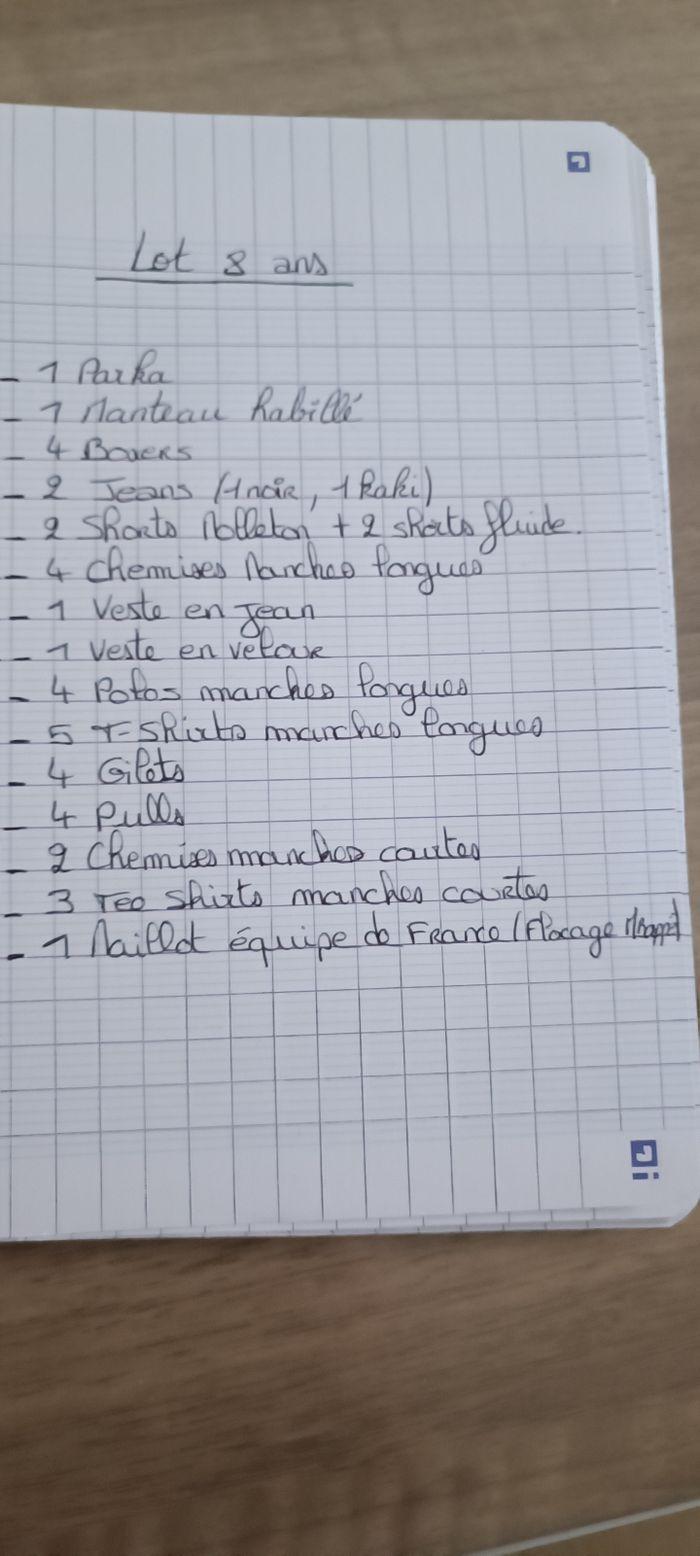 Lot 8 ans
- 1 Parka
- 1 Manteau habillé
- 4 Boxers
- 2 Jeans (1 noir, 1 kaki)
- 2 Shorts Molleton + 2 shorts fluide.
- 4 Chemises Manches longues
- 1 Veste en jean
- 1 Veste en velours
- 4 Polos manches longues
- 5 T-Shirts manches longues
- 4 Gilets
- 4 Pulls
- 2 Chemises manches courtes
- 3 Tee shirts manches courtes
- 1 Maillot équipe de France (Flocage